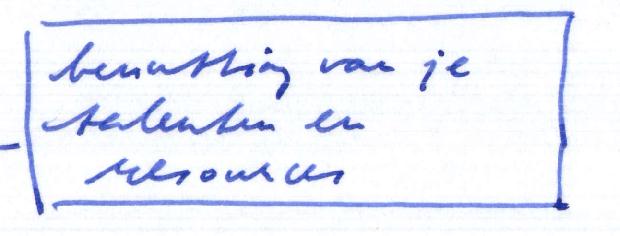 benutting van je
talenten en
resources